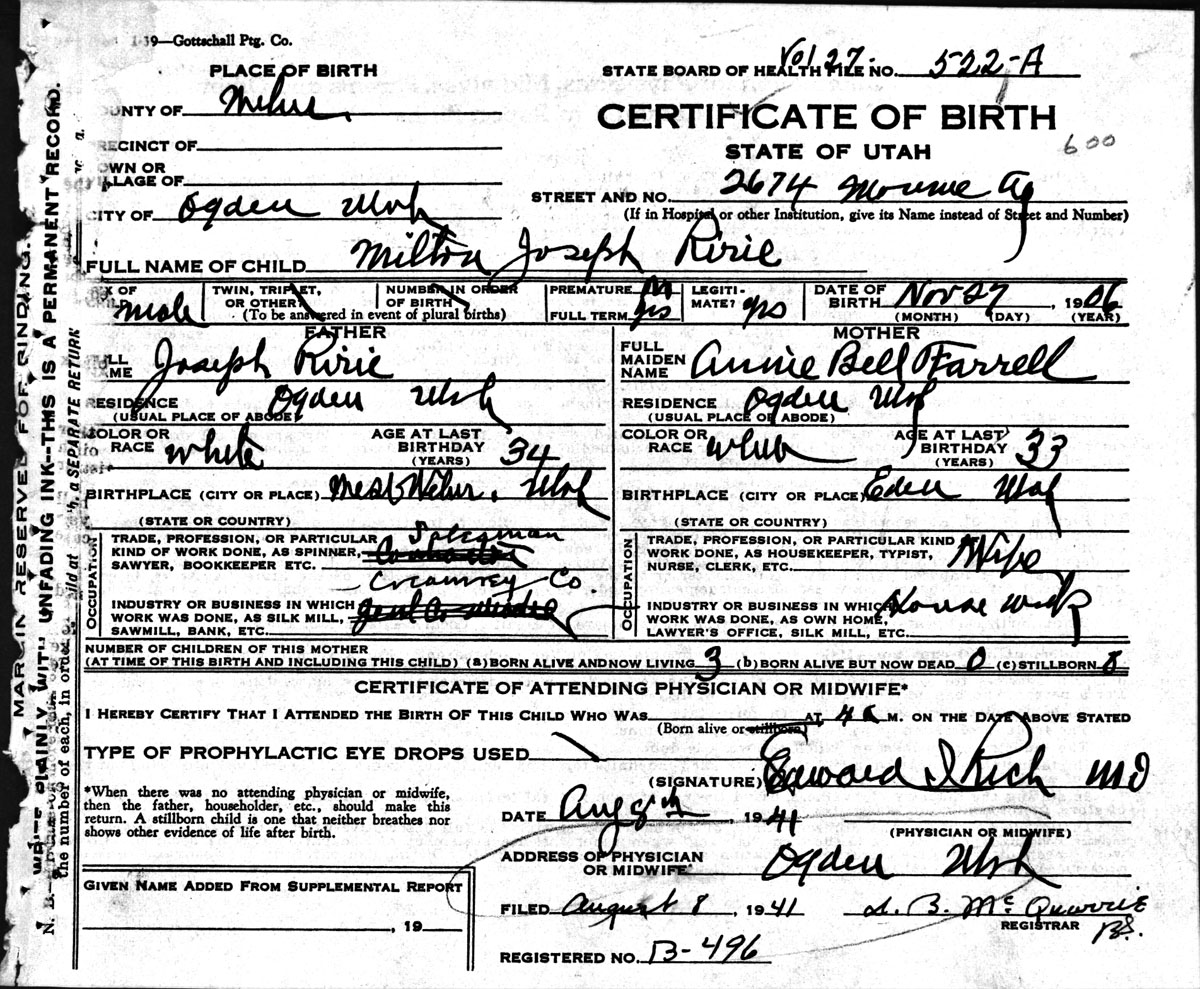 1-39—Gottschall Ptg. Co.
Vol 27.
PLACE OF BIRTH
STATE BOARD OF HEALTH FILE NO. 522-A
OUNTY OF Weber.
CERTIFICATE OF BIRTH
RECINCT OF
STATE OF UTAH
600
OWN OR
LLAGE OF
STREET AND NO. 2674 Monroe
(If in Hospital or other Institution, give its Name instead of Street and Number)
CITY OF Ogden Utah
FULL NAME OF CHILD Milton Joseph Ririe
EX OF
CHILD male
TWIN, TRIPLET,
OR OTHER?
NUMBER IN ORDER
OF BIRTH
(To be answered in event of plural births)
PREMATURE
FULL TERM yes
LEGITI-
MATE? yes
DATE OF
BIRTH Nov 27, 1906
(MONTH) (DAY) (YEAR)
FATHER
FULL
NAME Joseph Ririe
RESIDENCE Ogden Utah
(USUAL PLACE OF ABODE)
COLOR OR
RACE white
AGE AT LAST
BIRTHDAY 34
(YEARS)
BIRTHPLACE (CITY OR PLACE) West Weber. Utah
(STATE OR COUNTRY)
OCCUPATION
TRADE, PROFESSION, OR PARTICULAR
KIND OF WORK DONE, AS SPINNER,
SAWYER, BOOKKEEPER ETC.
Salesman
INDUSTRY OR BUSINESS IN WHICH
WORK WAS DONE, AS SILK MILL,
SAWMILL, BANK, ETC.
Creamrey Co
MOTHER
FULL
MAIDEN
NAME Annie Bell Farrell
RESIDENCE Ogden Utah
(USUAL PLACE OF ABODE)
COLOR OR
RACE white
AGE AT LAST
BIRTHDAY 33
(YEARS)
BIRTHPLACE (CITY OR PLACE) Eden Utah
(STATE OR COUNTRY)
OCCUPATION
TRADE, PROFESSION, OR PARTICULAR KIND
WORK DONE, AS HOUSEKEEPER, TYPIST,
NURSE, CLERK, ETC. Wife
INDUSTRY OR BUSINESS IN WHICH
WORK WAS DONE, AS OWN HOME,
LAWYER'S OFFICE, SILK MILL, ETC.
House work
NUMBER OF CHILDREN OF THIS MOTHER
(AT TIME OF THIS BIRTH AND INCLUDING THIS CHILD) (a) BORN ALIVE AND NOW LIVING 3 (b) BORN ALIVE BUT NOW DEAD 0 (c) STILLBORN 0
CERTIFICATE OF ATTENDING PHYSICIAN OR MIDWIFE*
I HEREBY CERTIFY THAT I ATTENDED THE BIRTH OF THIS CHILD WHO WAS AT 4 a M. ON THE DATE ABOVE STATED
(Born alive or stillborn)
TYPE OF PROPHYLACTIC EYE DROPS USED
(SIGNATURE) Edward I Rich MD
*When there was no attending physician or midwife,
then the father, householder, etc., should make this
return. A stillborn child is one that neither breathes nor
shows other evidence of life after birth.
DATE Aug 8th, 1941
(PHYSICIAN OR MIDWIFE)
ADDRESS OF PHYSICIAN
OR MIDWIFE* Ogden Utah
GIVEN NAME ADDED FROM SUPPLEMENTAL REPORT
, 19
FILED August 8, 1941 L. B. McQuarrie
REGISTRAR
BS.
REGISTERED NO. B-496
MARGIN RESERVED FOR BINDING.
WRITE PLAINLY WITH UNFADING INK--THIS IS A PERMANENT RECORD.
a SEPARATE RETURN
the number of each, in order
N. B.